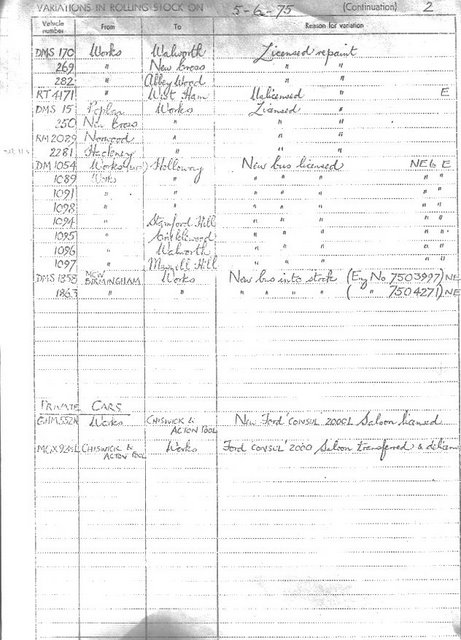 VARIATIONS IN ROLLING STOCK ON 5-6-75 (Continuation) 2
Vehicle number From To Reason for variation
DMS 170 Works Walworth Licensed repaint
269 " New Cross " "
282 " Abbey Wood " "
RT 4171 " West Ham Unlicensed " E
DMS 15 Poplar Works Licensed "
250 New Cross " " "
RM 2029 Norwood " " "
2281 Hackney " " "
DM 1054 Works Holloway New bus licensed NEG E
1089 Works " " " " " "
1091 " " " " " " "
1098 " " " " " " "
1094 " Stamford Hill " " " " "
1095 " Cricklewood " " " " "
1096 " Walworth " " " " "
1097 " Muswell Hill " " " " "
DMS 1858 NEW BIRMINGHAM Works New bus into stock (Eng No 7503997) NE
1863 " " " " " " ( " 7504271) NE
PRIVATE CARS
Works CHISWICK & ACTON TOOL New Ford 'CONSUL 2000L Saloon licensed
CHISWICK & ACTON TOOL Works Ford CONSUL' 2000 Saloon transferred &